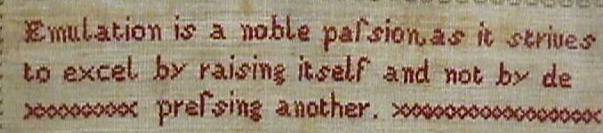 Emulation is a noble paſsion, as it strives
to excel by raising itself and not by de
preſsing another.